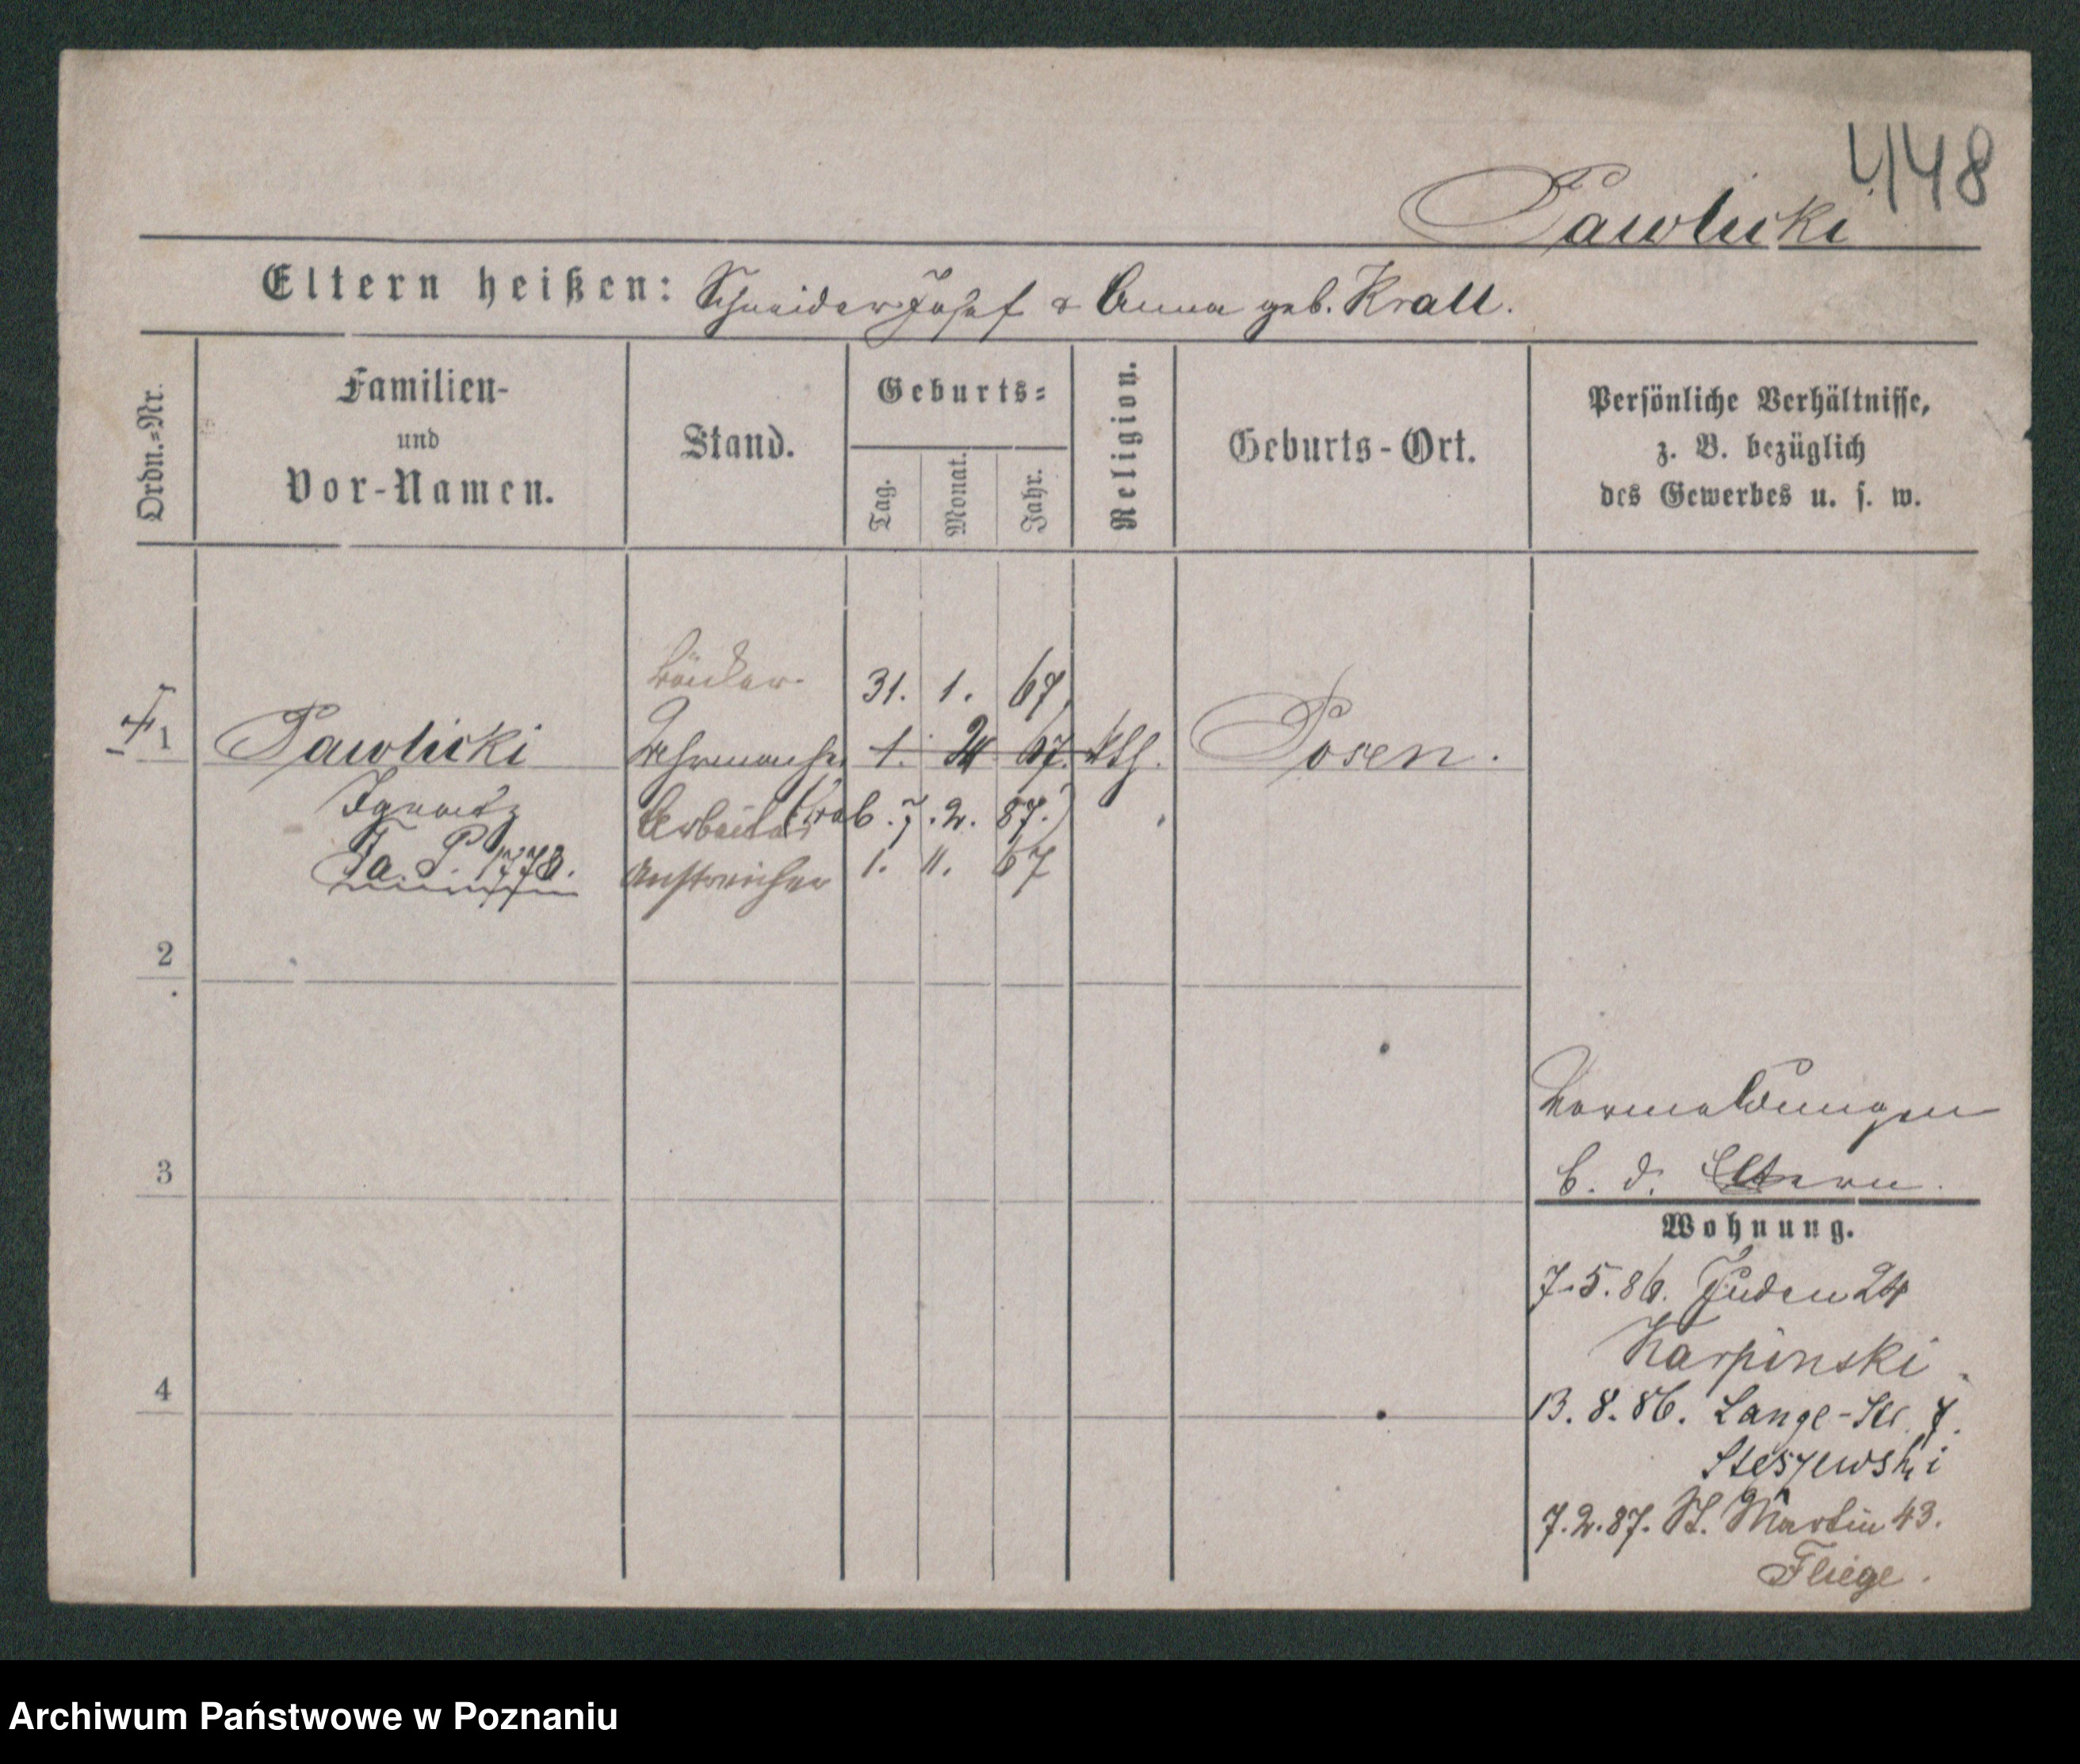 448
Pawlicki
Eltern heißen: Schneider Josef & Anna geb. Krall.
Ordn.=Nr.
Familien-
und
Vor-Namen.
Stand.
Geburts=
Tag.
Monat.
Jahr.
Religion.
Geburts-Ort.
Persönliche Verhältnisse,
z. B. bezüglich
des Gewerbes u. s. w.
Bäcker
31. 1. 67
1 Pawlicki 1. 67. kth. Posen.
Ignatz Arbeiter 7. 2. 87.)
Fa. P. 1778. Anstreicher 1. 11. 67
2
3
4
Vermeldungen
b. d. Eltern.
Wohnung.
7.5.86. Juden 24
Karpinski
13. 8. 86. Lange-Str. 7.
Steszewski
7.2.87. St. Martin 43.
Fliege.
Archiwum Państwowe w Poznaniu